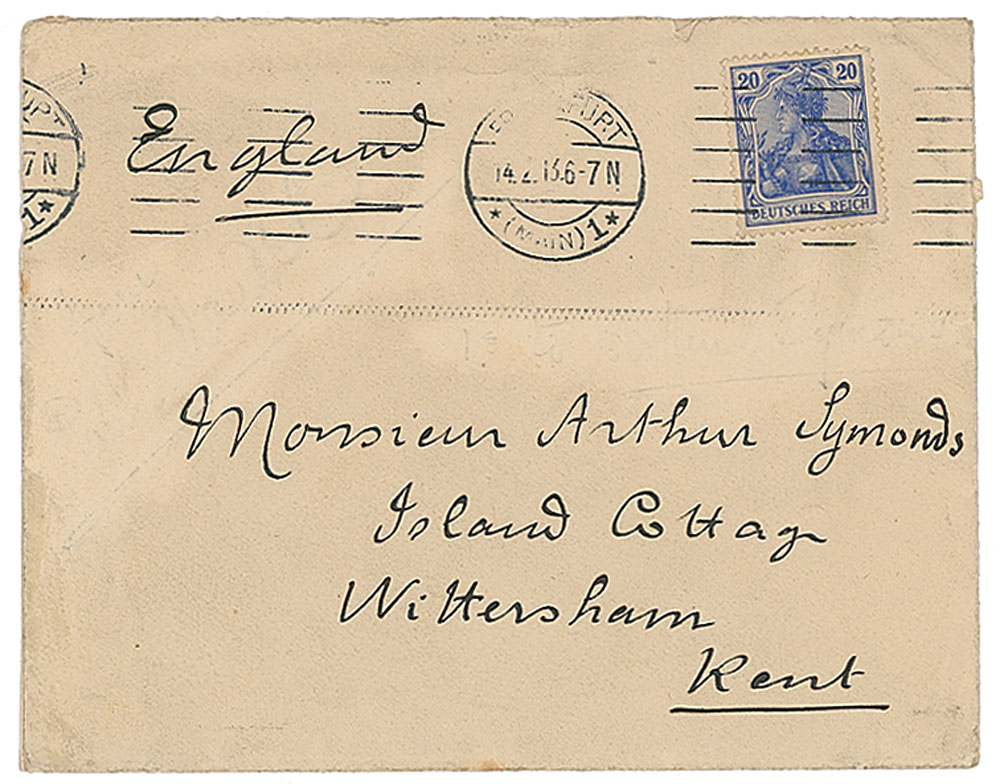 England
20 20
DEUTSCHES REICH
FURT
14.2.13.6-7N
* (MAIN) 1 *
URT
7N
1 *
Monsieur Arthur Symonds
Island Cottage
Wittersham
Kent